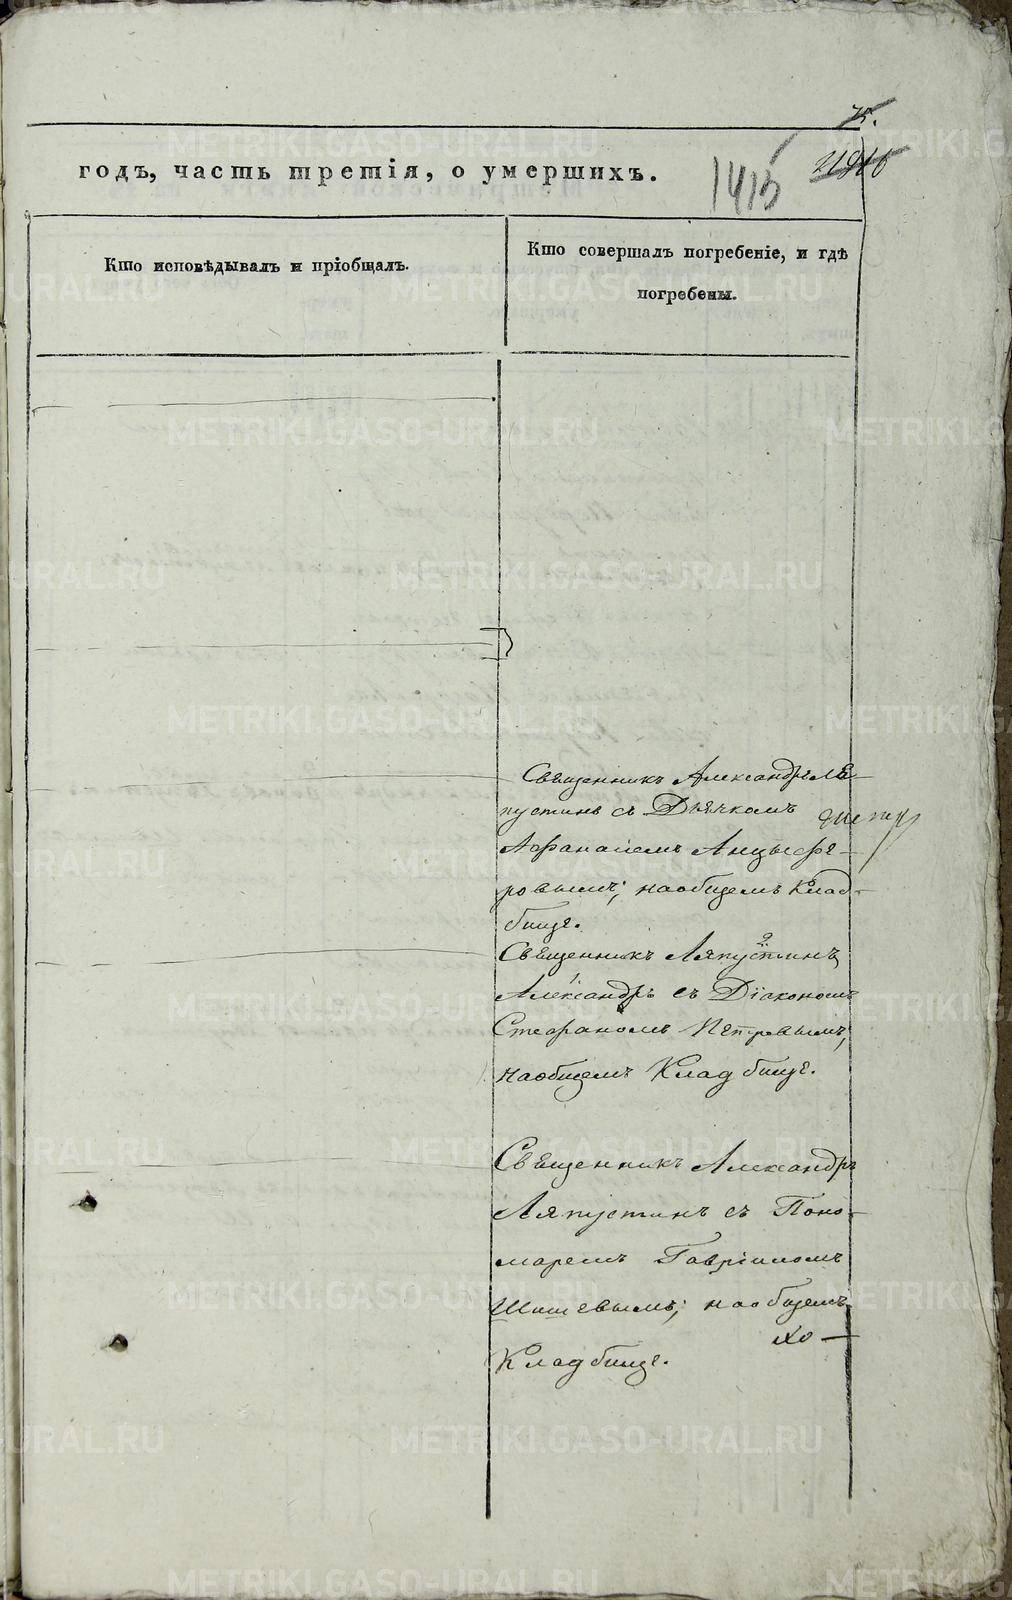 75.
годъ, часть третія, о умершихъ.
1415
Кто исповѣдывалъ и пріобщалъ.
Кто совершалъ погребеніе, и гдѣ
погребены.
Священникъ Александръ Ля-
пустинъ съ Дьячкомъ
Афанасіемъ Анцыфе-
ровымъ; наобщемъ Клад-
бище.
Священникъ Ляпустинъ 2
Александръ 1 съ Діакономъ
Стефаномъ Петровымъ,
наобщемъ Кладбище.
Священникъ Александръ
Ляпустинъ съ Поно-
маремъ Гавріиломъ
Шишевымъ; наобщемъ
Кладбище.
METRIKI.GASO-URAL.RU